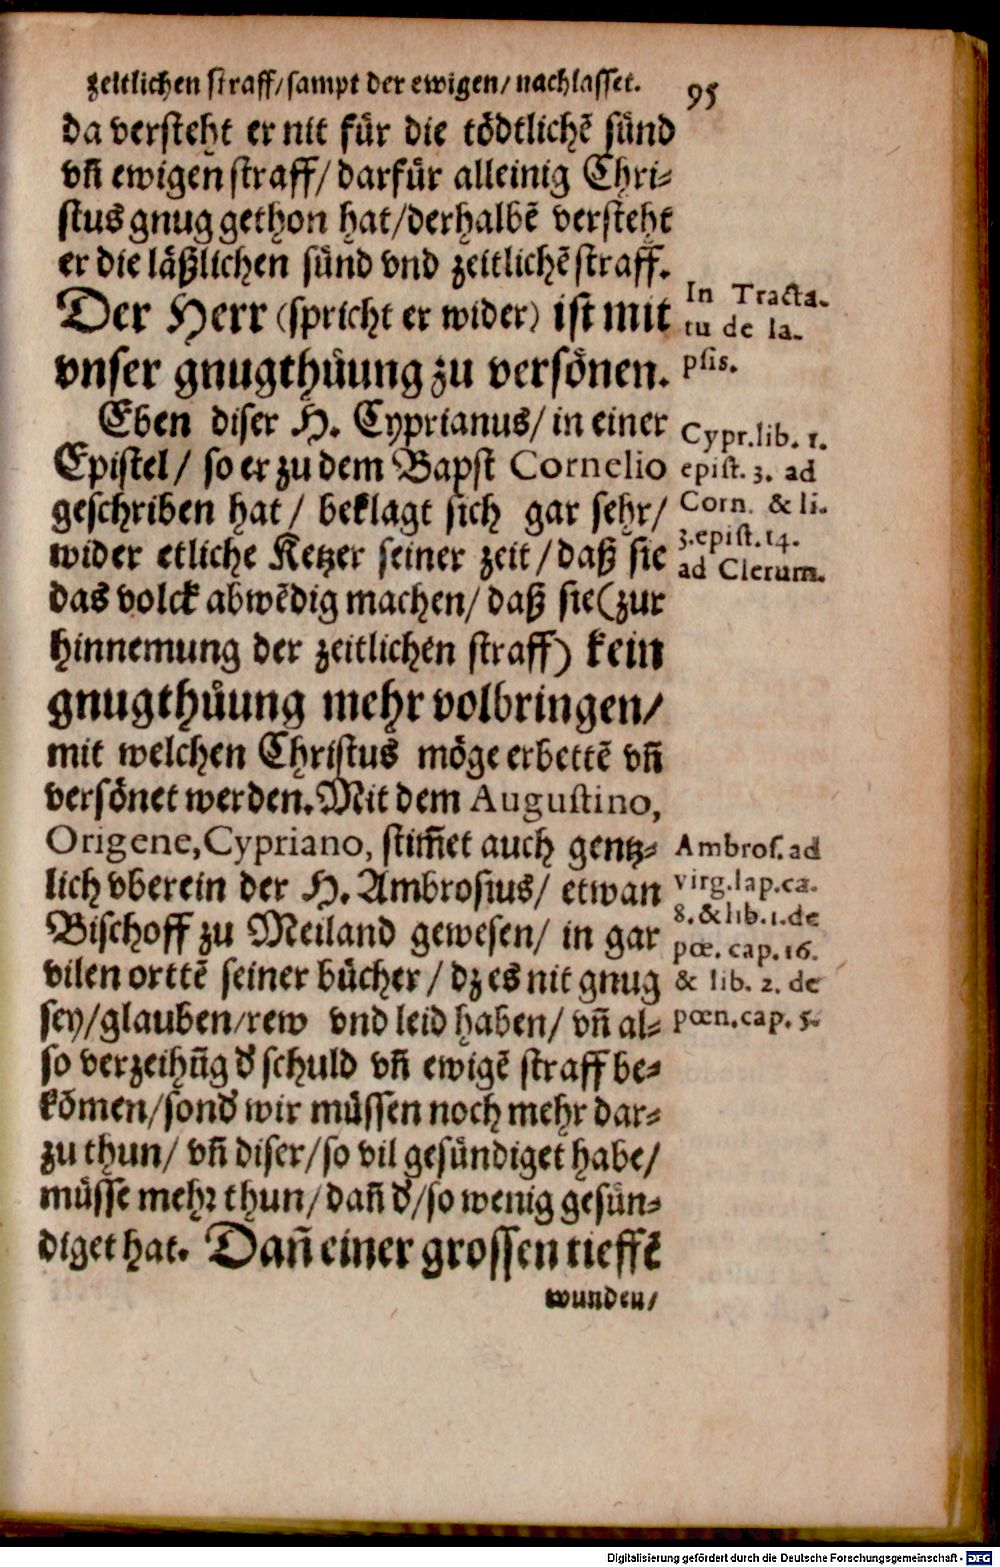 zeitlichen straff/sampt der ewigen/nachlasset. 95
da versteht er nit für die tödtlichē sünd
vn̄ ewigen straff/darfür alleinig Chri⸗
stus gnug gethon hat/derhalbē versteht
er die läßlichen sünd vnd zeitlichē straff.
Der Herr (spricht er wider) ist mit
vnser gnugthůung zu versönen.
In Tracta-
tu de la-
psis.
Eben diser H. Cyprianus/ in einer
Epistel/ so er zu dem Bapst Cornelio
geschriben hat/ beklagt sich gar sehr/
wider etliche Ketzer seiner zeit/daß sie
das volck abwēdig machen/daß sie(zur
hinnemung der zeitlichen straff) kein
gnugthůung mehr volbringen/
mit welchen Christus möge erbettē vn̄
versönet werden. Mit dem Augustino,
Cypr.lib. 1.
epist. 3. ad
Corn. & li.
3.epist.14.
ad Clerum.
Origene,Cypriano, stim̄et auch gentz⸗
lich vberein der H. Ambrosius/ etwan
Bischoff zu Meiland gewesen/ in gar
vilen orttē seiner bücher/dz es nit gnug
sey/glauben/rew vnd leid haben/ vn̄ al⸗
so verzeihūg d' schuld vn̄ ewigē straff be⸗
kōmen/sond' wir müssen noch mehr dar⸗
zu thun/ vn̄ diser/so vil gesündiget habe/
müsse mehr thun/dan̄ d'/so wenig gesün⸗
diget hat. Dan̄ einer grossen tieffē
Ambros. ad
virg.lap.ca.
8.&lib.1.de
pœ. cap.16.
& lib. 2. de
pœn.cap. 5.
wunden/
Digitalisierung gefördert durch die Deutsche Forschungsgemeinschaft - DFG